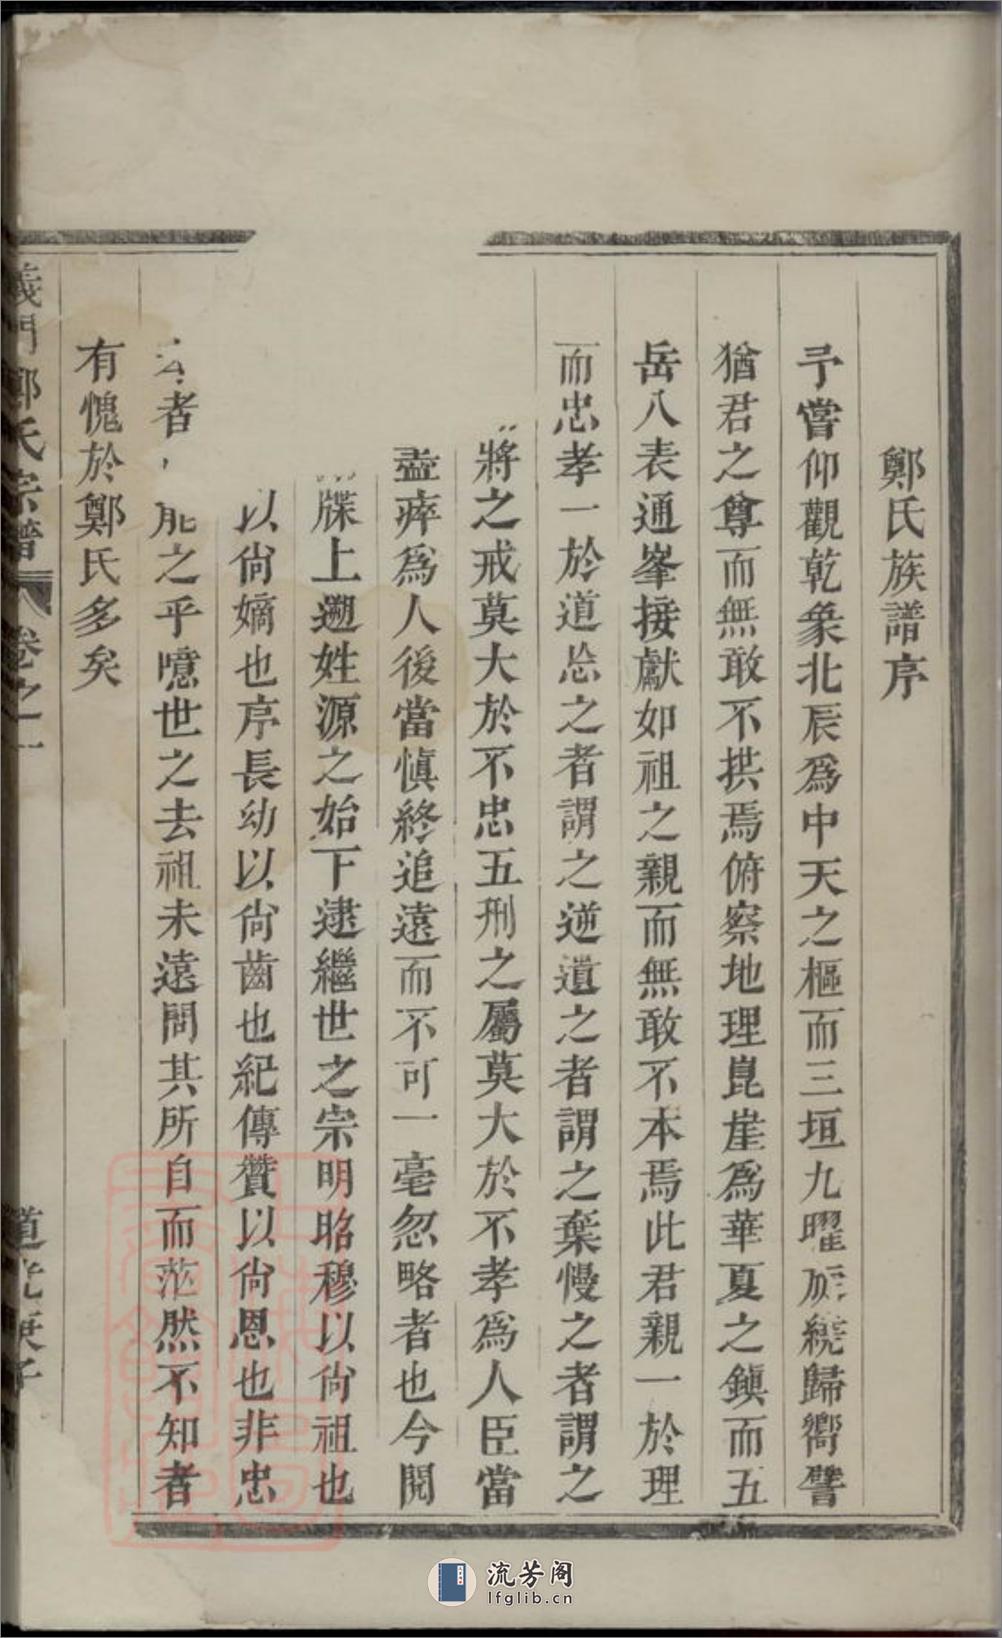 鄭氏族譜序
予嘗仰觀乾象北辰爲中天之樞而三垣九曜旋繞歸嚮譬
猶君之尊而無敢不拱焉俯察地理崑崖爲華夏之鎭而五
岳八表通峯接獻如祖之親而無敢不本焉此君親一於理
而忠孝一於道忩之者謂之逆道之者謂之棄慢之者謂之
將之戒莫大於不忠五刑之屬莫大於不孝爲人臣當
盡瘁爲人後當愼終追遠而不可一毫忽略者也今閱
牒上遡姓源之始下逮繼世之宗明昭穆以尙祖也
以尙嫡也序長幼以尙齒也紀傳贊以尙恩也非忠
者能之乎噫世之去祖未遠問其所自而茫然不知者
有愧於鄭氏多矣
義門鄭氏宗譜 卷之一 道光庚子
流芳阁
lfglib.cn